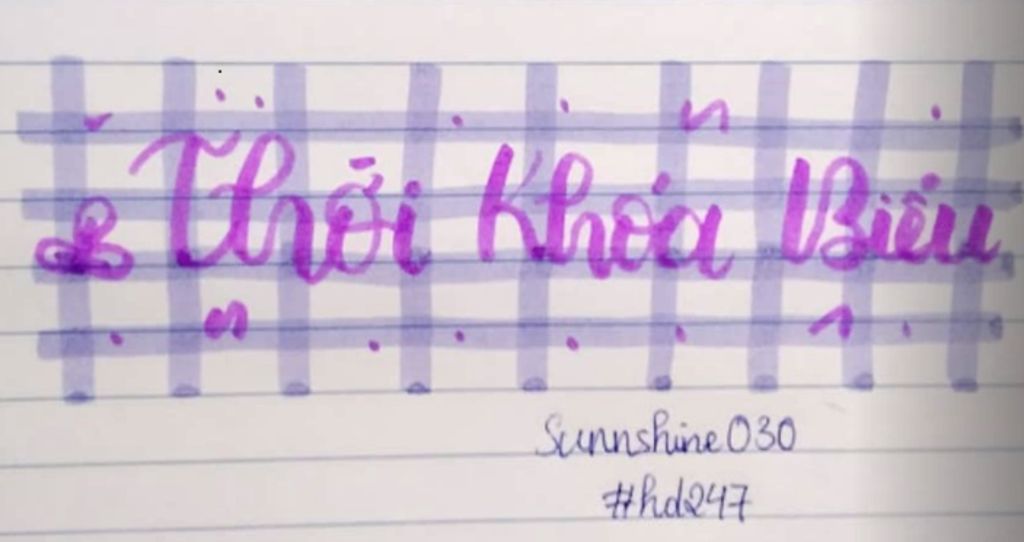 Thời Khóa Biểu
Sunnshine030
#hd247